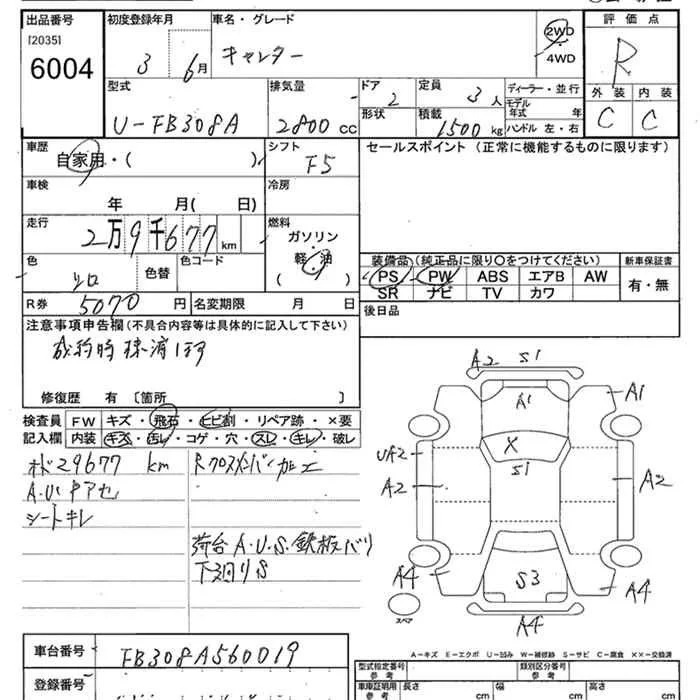 出品番号 初度登録年月 車名・グレード 評価点
[2035]
6004 3 6月 キャンター 2WD・4WD R
型式 排気量 ドア 2 定員 3人 ディーラー・並行 外装 内装
U-FB308A 2800cc 形状 積載 1500kg モデル年式 年 ハンドル 左・右 C C
車歴 シフト セールスポイント (正常に機能するものに限ります)
自家用・( ) F5
車検 冷房
年 月( 日)
走行 燃料
2万9千677km ガソリン
軽・油
色 色替 色コード ( ) 装備品(純正品に限り○をつけてください) 新車保証書
シロ PS PW ABS エアB AW 有・無
SR ナビ TV カワ
R券 5070円 名変期限 月 日 後日品
注意事項申告欄(不具合内容等は具体的に記入して下さい)
修復歴 有 〔箇所 〕
検査員 FW キズ・飛石・ヒビ割・リペア跡・×要
記入欄 内装 キズ・汚レ・コゲ・穴・スレ・キレ・破レ
29677km Rクロスメンバー加工
A.U.サアセ
シートキレ
荷台A.U.S.鉄板バリ
下廻りS
A2 S1
A1 A1
X
UA2 S1
A2 A2
A4 S3 A4
スペア A4
A-キズ E-エクボ U-凹み W-補修跡 S-サビ C-腐食 ××-交換済
車台番号 FB308A560019 型式指定番号 参考 類別区分番号 参考
登録番号 車庫証明用 参考 長さ cm 幅 cm 高さ cm